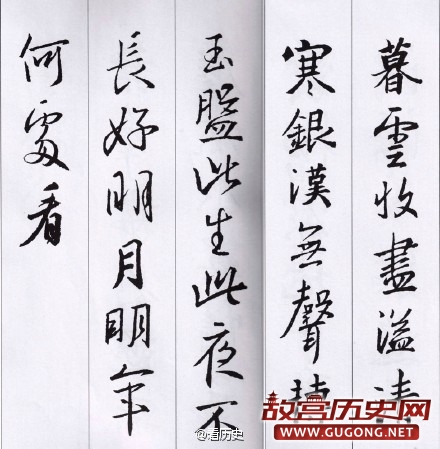 暮雲收盡溢清
寒銀漢無聲轉
玉盤此生此夜不
長好明月明年
何處看
@看历史
故宫历史网
WWW.GUGONG.NET